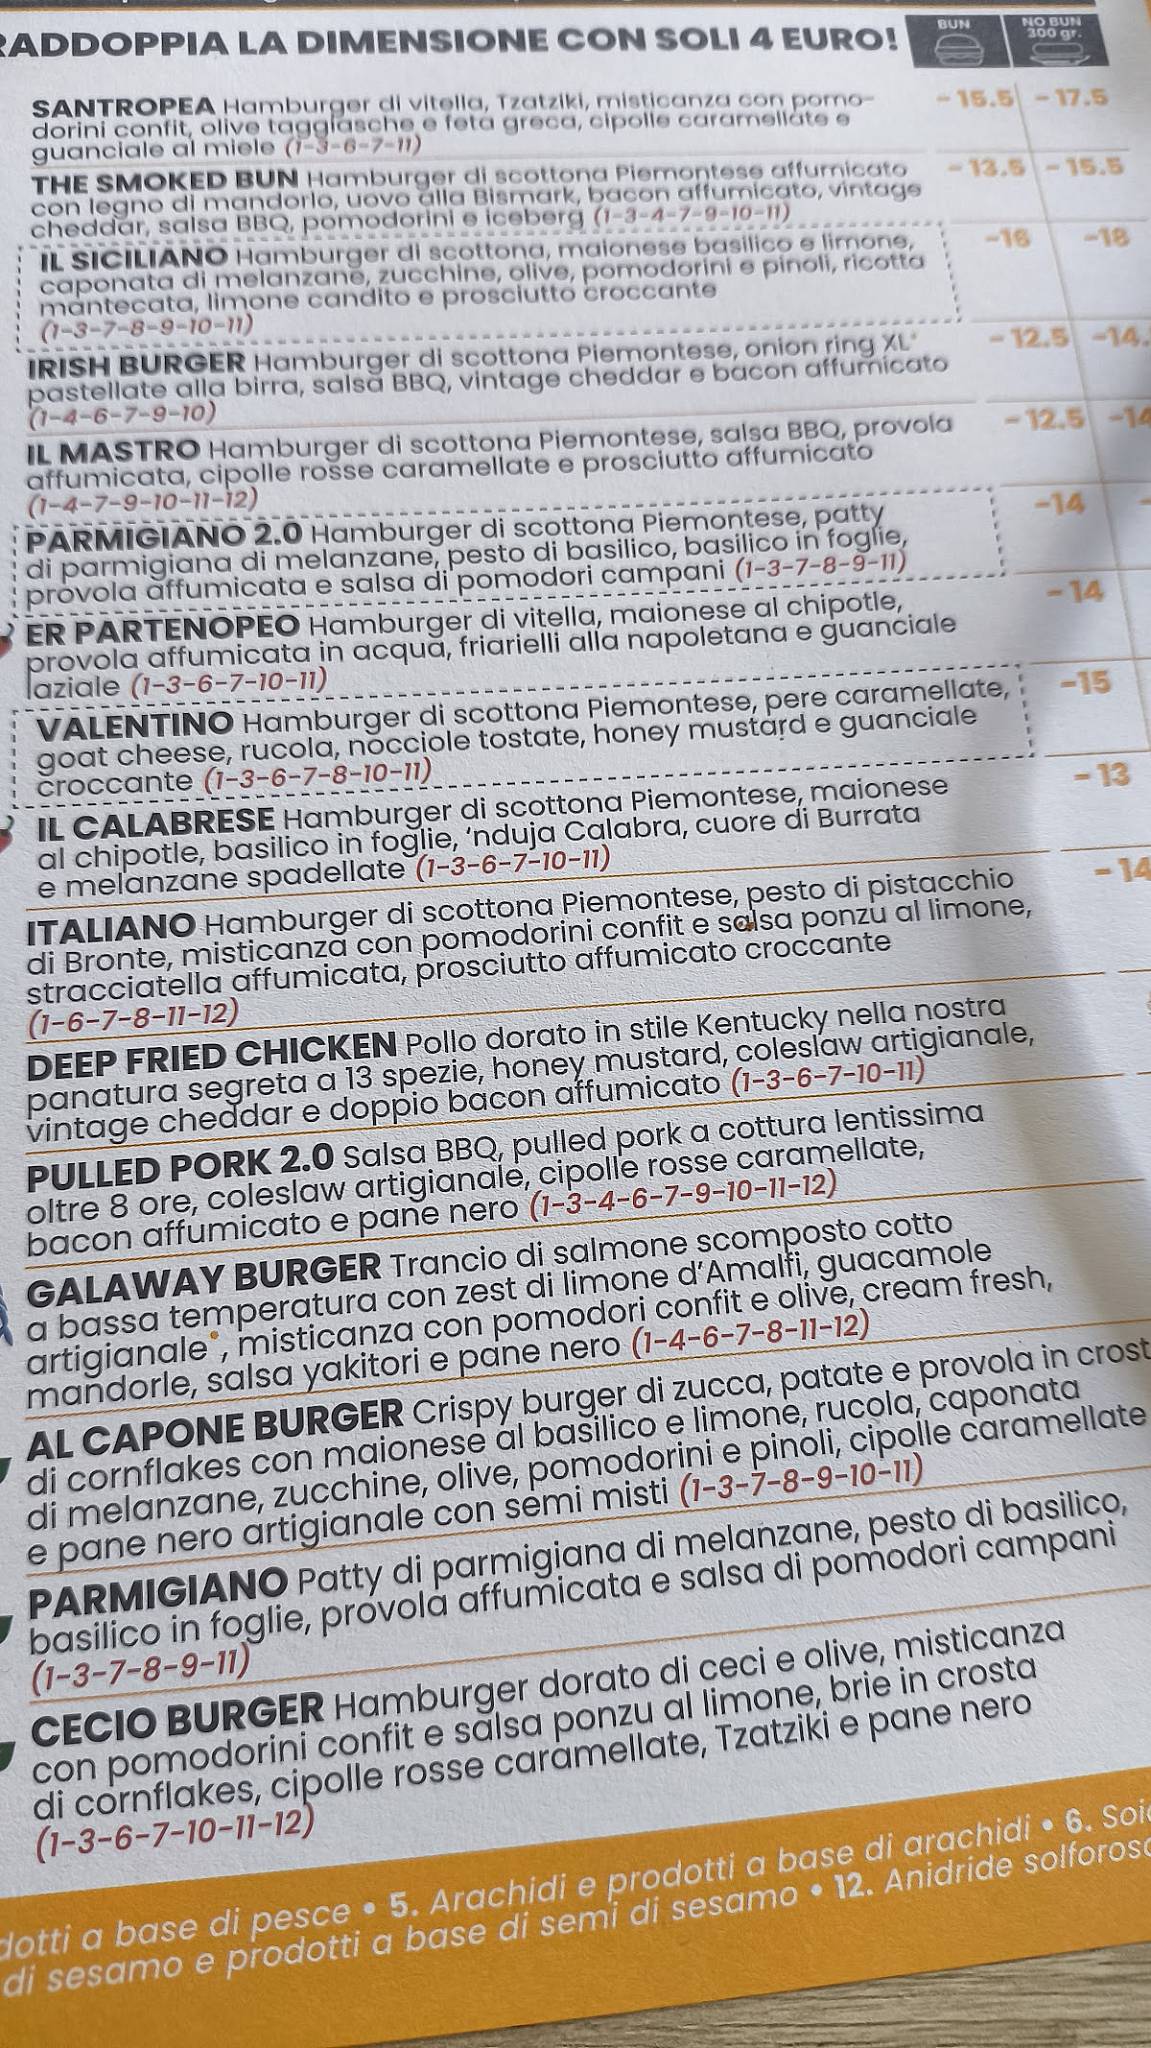 RADDOPPIA LA DIMENSIONE CON SOLI 4 EURO!
BUN
NO BUN
300 gr.
SANTROPEA Hamburger di vitella, Tzatziki, misticanza con pomo-
dorini confit, olive taggiasche e feta greca, cipolle caramellate e
guanciale al miele (1-3-6-7-11)
- 15.5 - 17.5
THE SMOKED BUN Hamburger di scottona Piemontese affumicato
con legno di mandorlo, uovo alla Bismark, bacon affumicato, vintage
cheddar, salsa BBQ, pomodorini e iceberg (1-3-4-7-9-10-11)
- 13.5 - 15.5
IL SICILIANO Hamburger di scottona, maionese basilico e limone,
caponata di melanzane, zucchine, olive, pomodorini e pinoli, ricotta
mantecata, limone candito e prosciutto croccante
(1-3-7-8-9-10-11)
-16 -18
IRISH BURGER Hamburger di scottona Piemontese, onion ring XL*
pastellate alla birra, salsa BBQ, vintage cheddar e bacon affumicato
(1-4-6-7-9-10)
- 12.5 -14.
IL MASTRO Hamburger di scottona Piemontese, salsa BBQ, provola
affumicata, cipolle rosse caramellate e prosciutto affumicato
(1-4-7-9-10-11-12)
- 12.5 -14
PARMIGIANO 2.0 Hamburger di scottona Piemontese, patty
di parmigiana di melanzane, pesto di basilico, basilico in foglie,
provola affumicata e salsa di pomodori campani (1-3-7-8-9-11)
-14 -
ER PARTENOPEO Hamburger di vitella, maionese al chipotle,
provola affumicata in acqua, friarielli alla napoletana e guanciale
laziale (1-3-6-7-10-11)
- 14
VALENTINO Hamburger di scottona Piemontese, pere caramellate,
goat cheese, rucola, nocciole tostate, honey mustard e guanciale
croccante (1-3-6-7-8-10-11)
-15
IL CALABRESE Hamburger di scottona Piemontese, maionese
al chipotle, basilico in foglie, ‘nduja Calabra, cuore di Burrata
e melanzane spadellate (1-3-6-7-10-11)
- 13
ITALIANO Hamburger di scottona Piemontese, pesto di pistacchio
di Bronte, misticanza con pomodorini confit e salsa ponzu al limone,
stracciatella affumicata, prosciutto affumicato croccante
(1-6-7-8-11-12)
- 14
DEEP FRIED CHICKEN Pollo dorato in stile Kentucky nella nostra
panatura segreta a 13 spezie, honey mustard, coleslaw artigianale,
vintage cheddar e doppio bacon affumicato (1-3-6-7-10-11)
PULLED PORK 2.0 Salsa BBQ, pulled pork a cottura lentissima
oltre 8 ore, coleslaw artigianale, cipolle rosse caramellate,
bacon affumicato e pane nero (1-3-4-6-7-9-10-11-12)
GALAWAY BURGER Trancio di salmone scomposto cotto
a bassa temperatura con zest di limone d’Amalfi, guacamole
artigianale*, misticanza con pomodori confit e olive, cream fresh,
mandorle, salsa yakitori e pane nero (1-4-6-7-8-11-12)
AL CAPONE BURGER Crispy burger di zucca, patate e provola in crost
di cornflakes con maionese al basilico e limone, rucola, caponata
di melanzane, zucchine, olive, pomodorini e pinoli, cipolle caramellate
e pane nero artigianale con semi misti (1-3-7-8-9-10-11)
PARMIGIANO Patty di parmigiana di melanzane, pesto di basilico,
basilico in foglie, provola affumicata e salsa di pomodori campani
(1-3-7-8-9-11)
CECIO BURGER Hamburger dorato di ceci e olive, misticanza
con pomodorini confit e salsa ponzu al limone, brie in crosta
di cornflakes, cipolle rosse caramellate, Tzatziki e pane nero
(1-3-6-7-10-11-12)
dotti a base di pesce • 5. Arachidi e prodotti a base di arachidi • 6. Soi
di sesamo e prodotti a base di semi di sesamo • 12. Anidride solforos